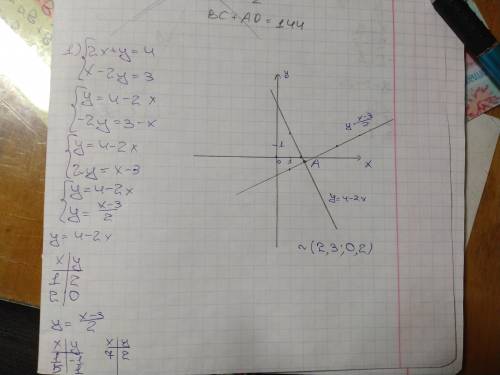 BC + AD = 144
1) {2x+y=4
x-2y=3
{y=4-2x
-2y=3-x
{y=4-2x
2y=x-3
{y=4-2x
y=x-3/2
y=4-2x
x|y
1|2
2|0
y=x-3/2
x|y
1|-1
x|y
7|2
y
y=x-3/2
1
0 1 A x
y=4-2x
~(2,3; 0,2)